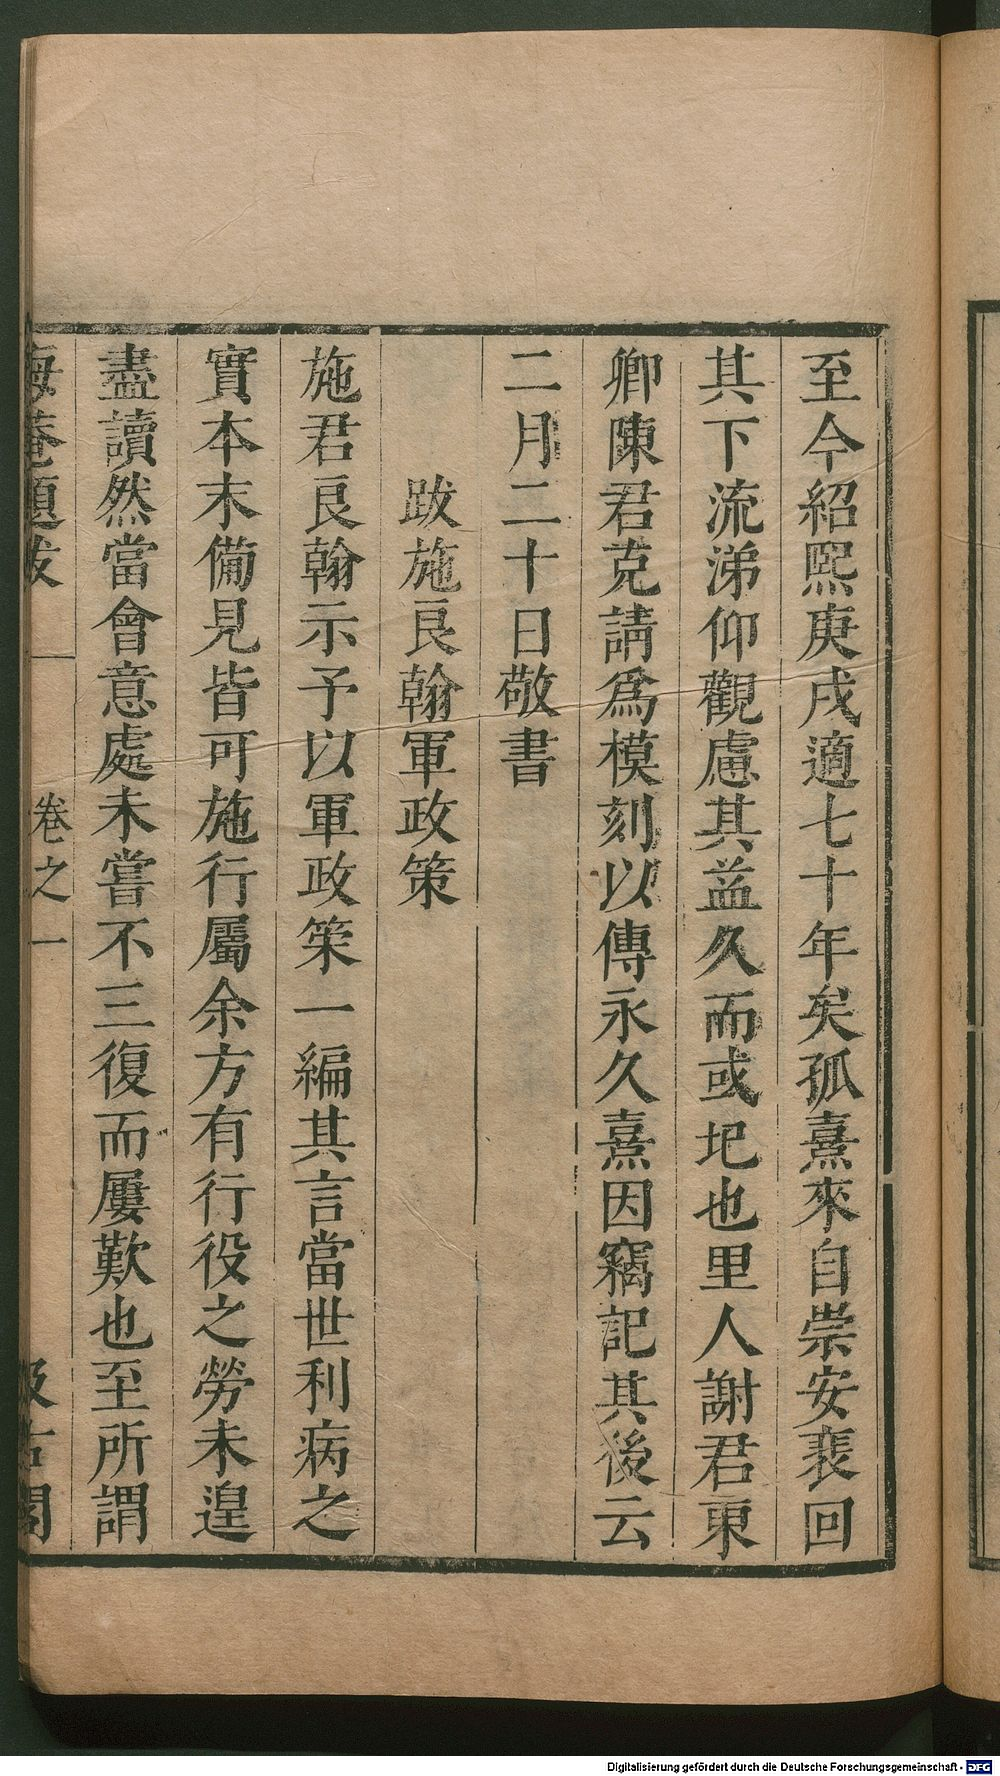 至今紹熙庚戌適七十年矣孤熹來自崇安裴回
其下流涕仰觀慮其益久而或圮也里人謝君東
卿陳君克請爲模刻以傳永久熹因竊記其後云
二月二十日敬書
跋施良翰軍政策
施君良翰示予以軍政策一編其言當世利病之
實本末備見皆可施行屬余方有行役之勞未遑
盡讀然當會意處未嘗不三復而屢歎也至所謂
晦菴題跋 卷之一 汲古閣
Digitalisierung gefördert durch die Deutsche Forschungsgemeinschaft - DFG